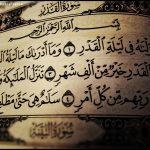 سُورَةُ القَدْرِ
بِسْمِ اللَّهِ الرَّحْمَٰنِ الرَّحِيمِ
فِي لَيْلَةِ الْقَدْرِ ١ وَمَا أَدْرَىٰكَ مَا لَيْلَةُ
الْقَدْرِ خَيْرٌ مِّنْ أَلْفِ شَهْرٍ ٣ تَنَزَّلُ الْمَلَٰٓئِكَةُ
رَبِّهِم مِّن كُلِّ أَمْرٍ ٤ سَلَٰمٌ هِيَ حَتَّىٰ
سُورَةُ البَيِّنَةِ